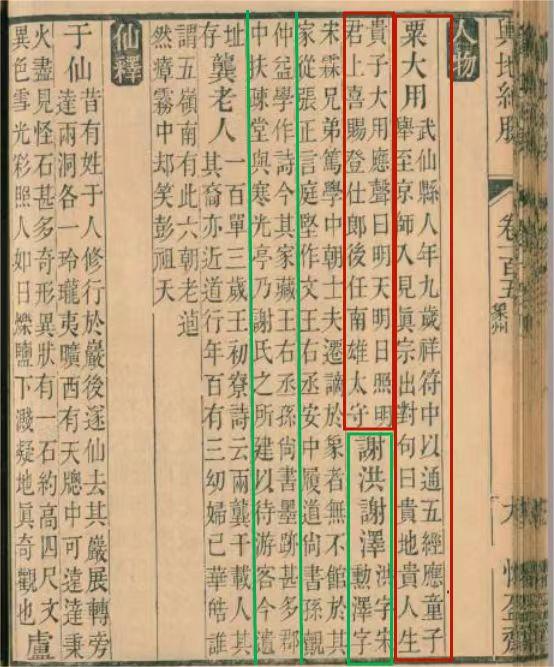 輿地紀勝 卷一百五 象州 六 懼盈齋
人物
粟大用 武仙縣人年九歲祥符中以通五經應童子
舉至京師入見眞宗出對句曰貴地貴人生
貴子大用應聲曰明天明日照明
君上喜賜登仕郎後任南雄太守
謝洪謝澤 洪字宋
勳澤字
宋霖兄弟篤學中朝士夫遷謫於象者無不館於其
家從張正言庭堅作文王右丞安中履道尙書孫覿
仲益學作詩今其家藏王右丞孫尙書墨跡甚多郡
中扶踈堂與寒光亭乃謝氏之所建以待游客今遺
址
存
龔老人 一百單三歲王初寮詩云兩龔千載人其
其裔亦近道行年百有三幼婦已華皓誰
謂五嶺南有此六朝老
然瘴霧中却笑彭祖天
仙釋
于仙 昔有姓于人修行於巖後遂仙去其巖展轉旁
達兩洞各一玲瓏夷曠西有天牕中可遠達秉
火盡見怪石甚多奇形異狀有一石約高四尺文
異色雪光彩照人如日爍鹽下濺疑地眞奇觀也
盧